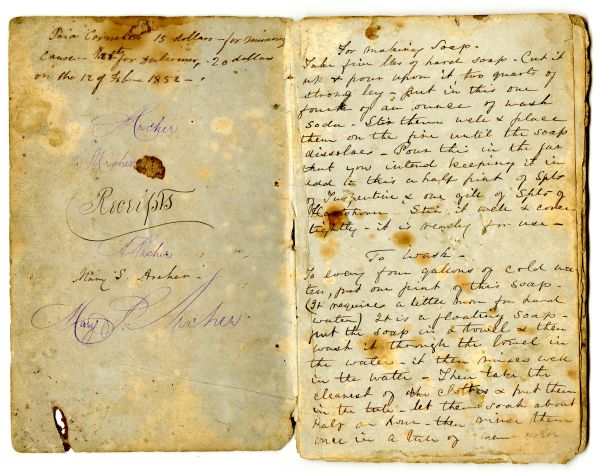 Paid Cornelia 15 dollars - for missionary
cause - for
on the 12 of Feb - 1852 -
Archer
Archer
Receipts
Archer
Mary S. Archer -
Mary S. Archer
For making Soap -
Take five lbs of hard soap - Cut it
up & pour upon it two quarts of
strong ley - put in this one
fourth of an ounce of wash
Soda - Stir them well & place
them on the fire until the soap
dissolves - Pour this in the jar
that you intend keeping it in
add to this a half pint of Spts
of Turpentine & one gill of Spts of
Hartshorn - Stir it well &
it is ready for use -
To Wash -
To every four gallons of cold wa
ter, put one pint of this Soap -
(It requires a little more for hard
water) It is a floating Soap -
put the soap in a towel & then
wash it through the towel in
the water - it then mixes well
in the water - Then take the
cleanest of the clothes & put them
in the tub - let them soak about
half an hour - then rinse them
once in a tub of